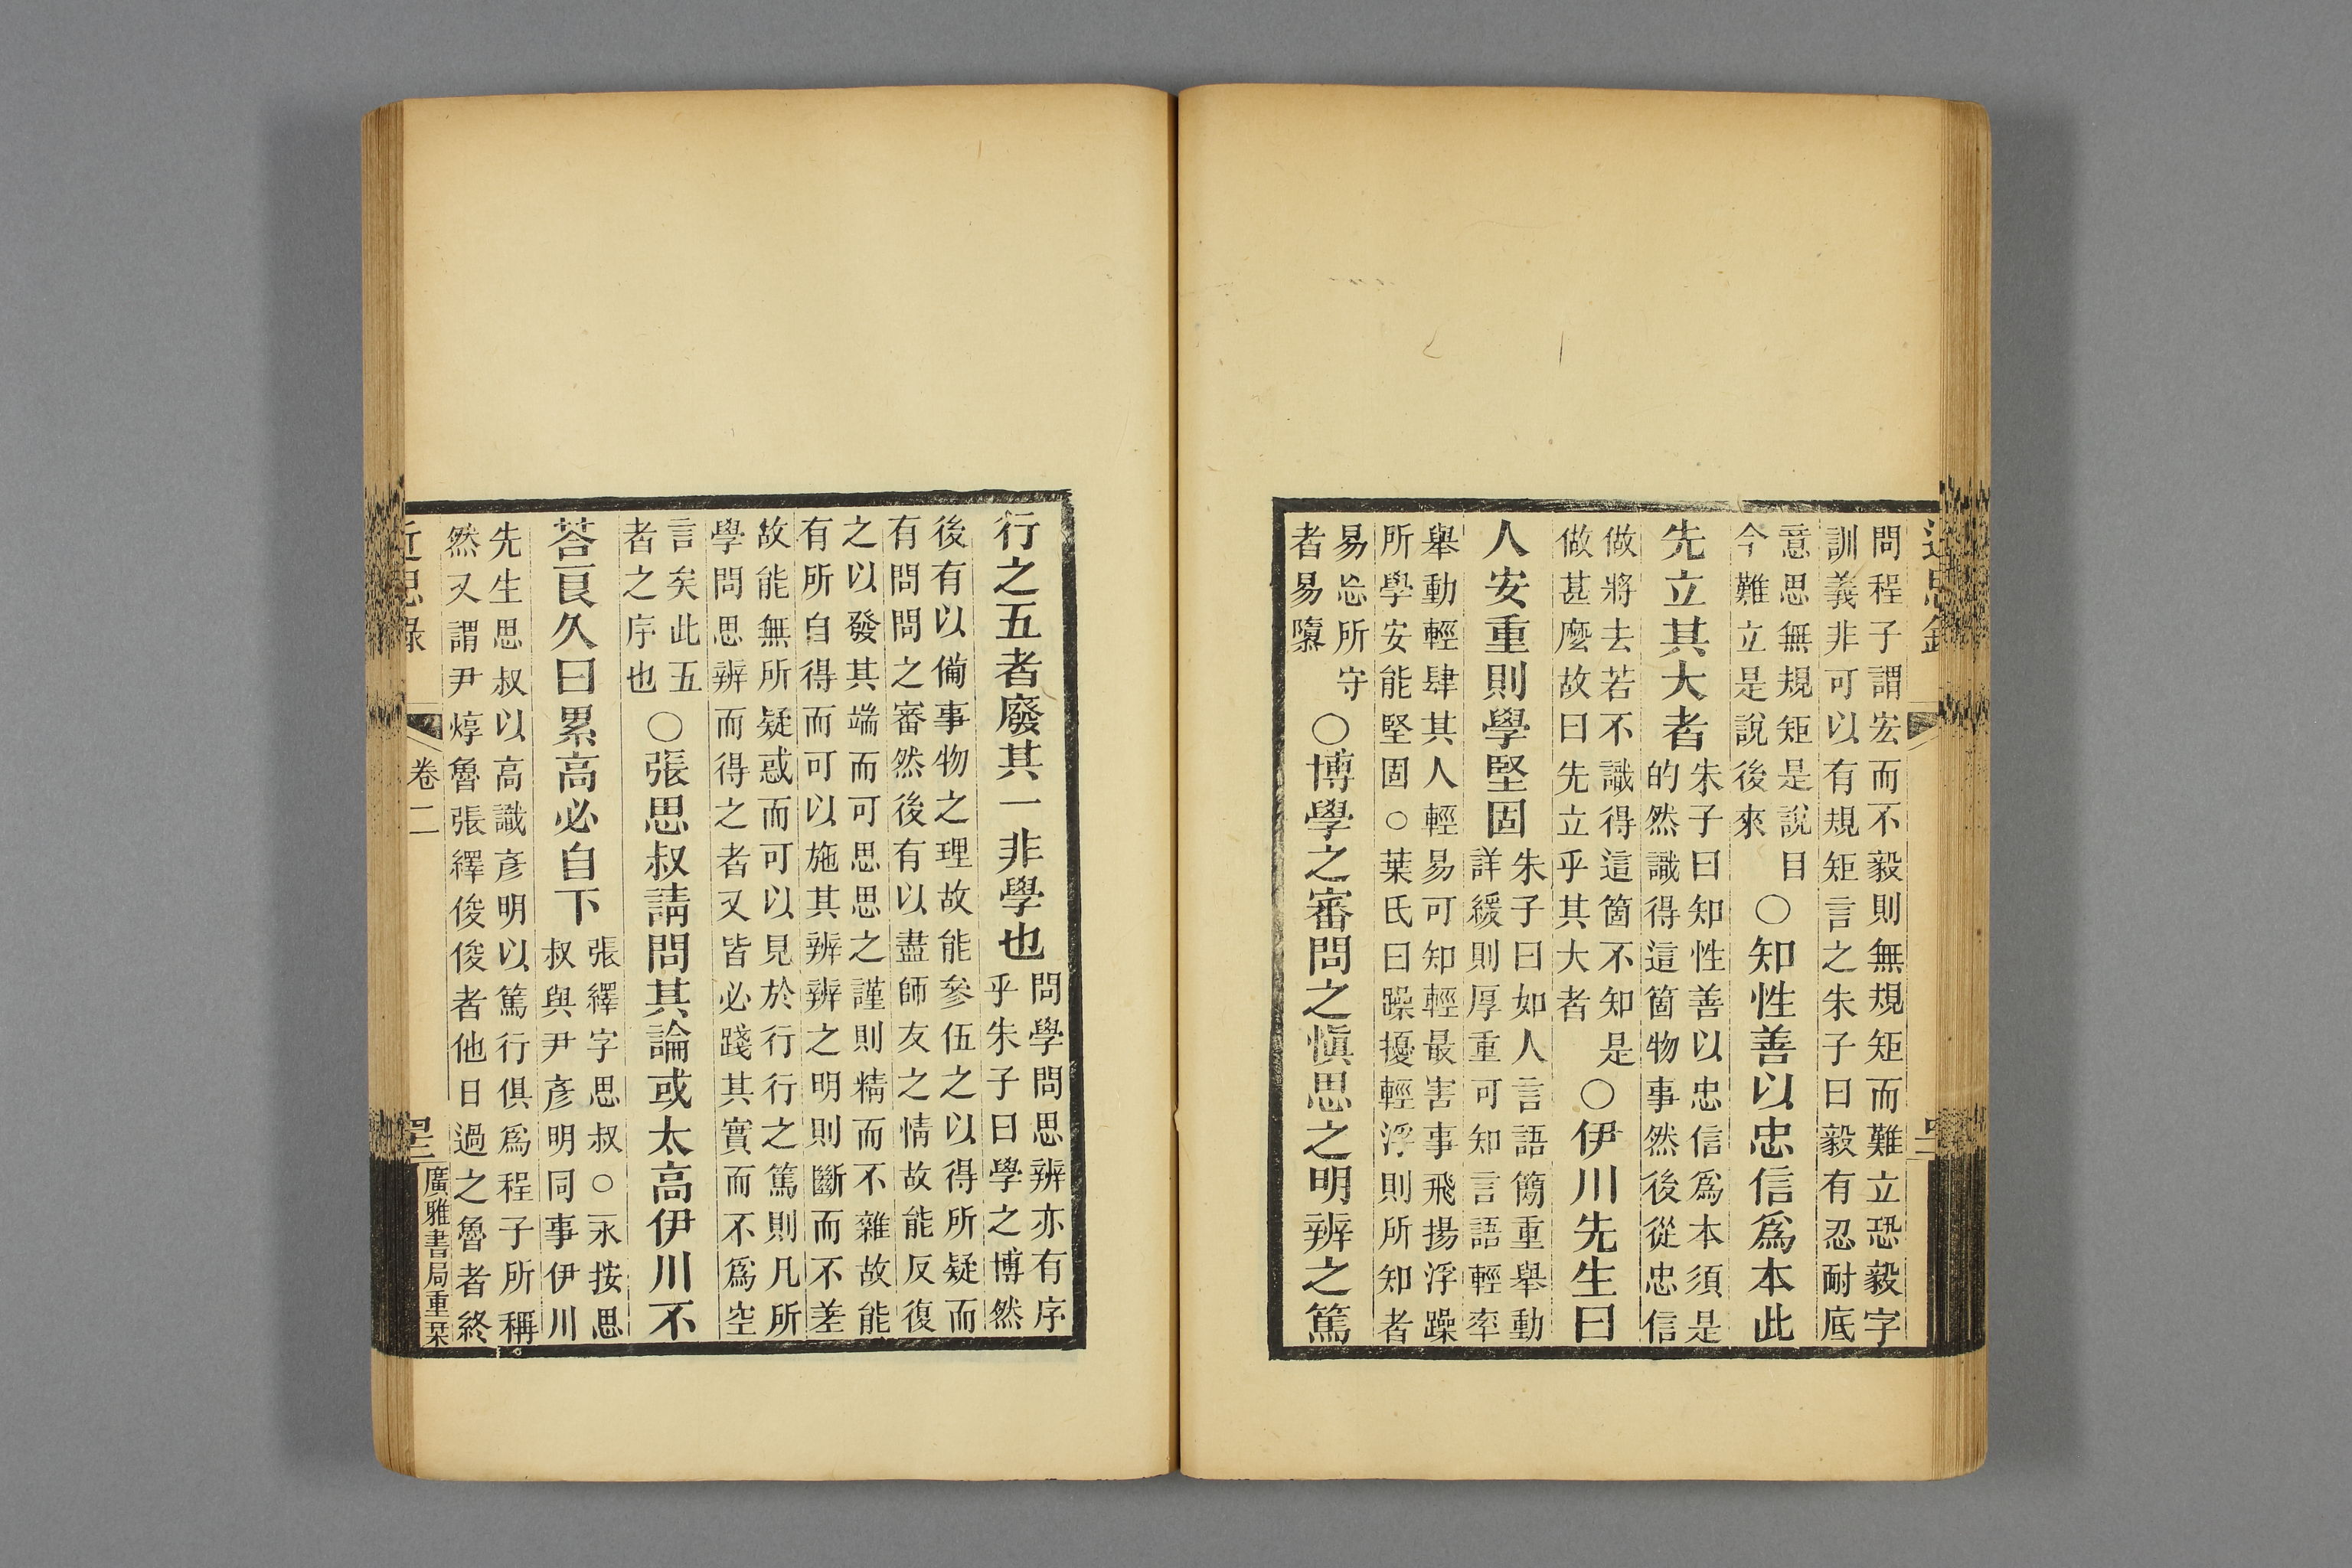 問程子謂宏而不毅則無規矩而難立恐毅字
訓義非可以有規矩言之朱子曰毅有忍耐底
意思無規矩是說目
今難立是說後來
○知性善以忠信爲本此
先立其大者
朱子曰知性善以忠信爲本須是
的然識得這箇物事然後從忠信
做將去若不識得這箇不知是
做甚麼故曰先立乎其大者
○伊川先生曰
人安重則學堅固
朱子曰如人言語簡重舉動
詳緩則厚重可知言語輕率
舉動輕肆其人輕易可知輕最害事飛揚浮躁
所學安能堅固○葉氏曰躁擾輕浮則所知者
易忘所守
者易隳
○博學之審問之愼思之明辨之篤
行之五者廢其一非學也
問學問思辨亦有序
乎朱子曰學之博然
後有以備事物之理故能參伍之以得所疑而
有問問之審然後有以盡師友之情故能反復
之以發其端而可思思之謹則精而不雜故能
有所自得而可以施其辨辨之明則斷而不差
故能無所疑惑而可以見於行行之篤則凡所
學問思辨而得之者又皆必踐其實而不爲空
言矣此五
者之序也
○張思叔請問其論或太高伊川不
荅良久曰累高必自下
張繹字思叔○永按思
叔與尹彥明同事伊川
先生思叔以高識彥明以篤行俱爲程子所稱
然又謂尹焞魯張繹俊俊者他日過之魯者終
近思錄
卷二
廣雅書局重栞